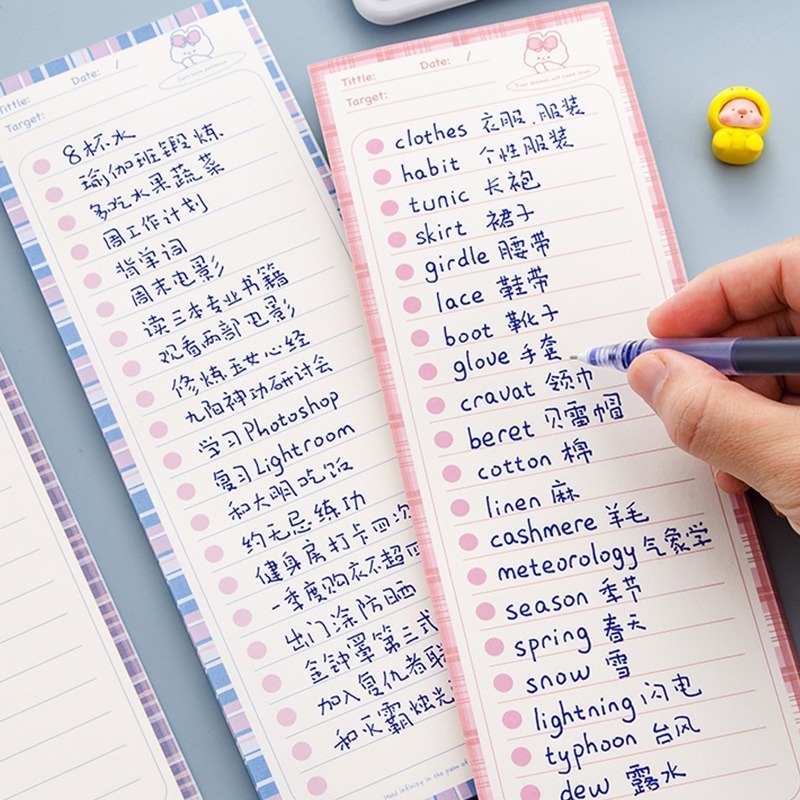 Tittle:
Date: /
Just have patience
Target:
8杯水
瑜伽班锻炼
多吃水果蔬菜
周工作计划
背单词
周末电影
读三本专业书籍
观看两部电影
修炼玉女心经
九阳神功研讨会
学习Photoshop
复习Lightroom
和大明吃饭
约无忌练功
健身房打卡四次
一季度购衣不超四
出门涂防晒
金钟罩第三式
加入复仇者联
和灭霸烛光
Hold infinity in the palm of
Tittle:
Date: /
Your dreams will come true
Target:
clothes 衣服.服装
habit 个性服装
tunic 长袍
skirt 裙子
girdle 腰带
lace 鞋带
boot 靴子
glove 手套
cravat 领巾
beret 贝雷帽
cotton 棉
linen 麻
cashmere 羊毛
meteorology 气象学
season 季节
spring 春天
snow 雪
lightning 闪电
typhoon 台风
dew 露水